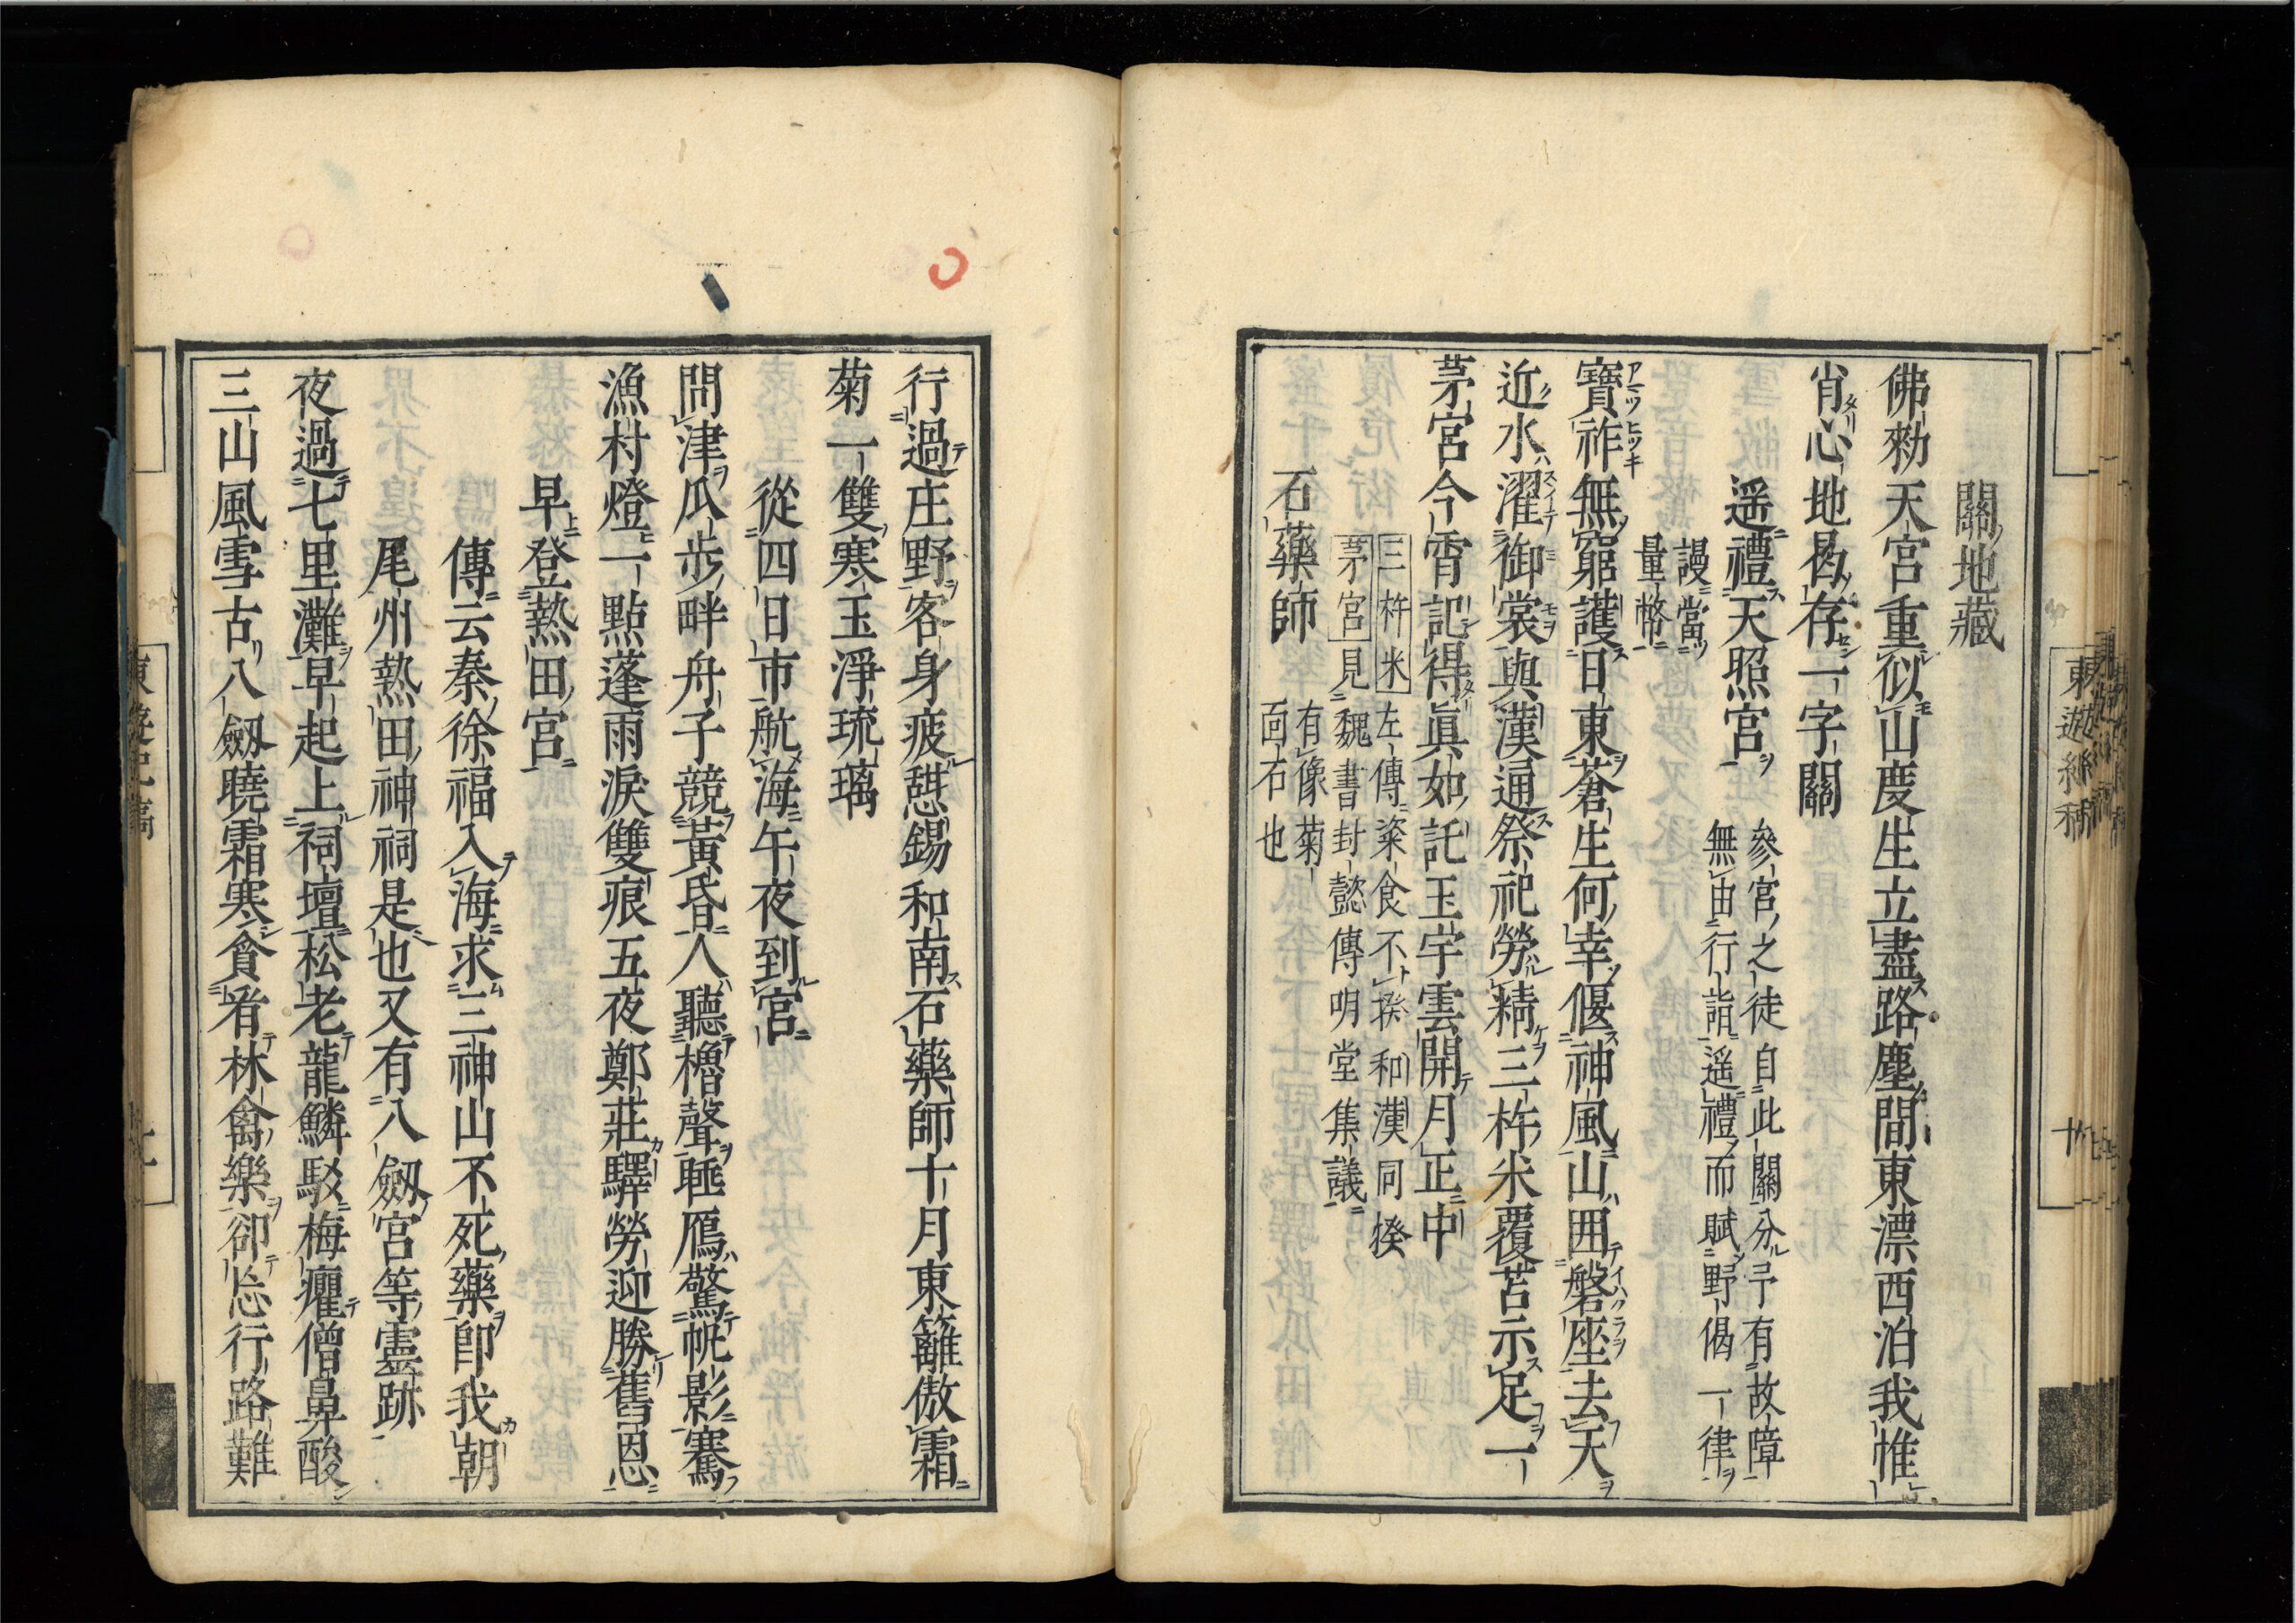 關地藏
佛勑天宮重似山慶生立盡路塵間東漂西泊我惟
肖心地曷存一字關
遥禮天照宮
參宮之徒自此關分予有故障
無由行詣遥禮而賦野偈一律
謾當
量幣
寶祚無窮護日東蒼生何幸偃神風山囲磐座去天
近水濯御裳與漢通祭祀勞精三杵米覆苫示足一
茅宮今宵記得眞如託玉宇雲開月正中
三杵米左傳粢食不揬和漢同揆
茅宮見魏書封懿傳明堂集議
石藥師
有像菊
面石也
行過庄野客身疲憇錫和南石藥師十月東籬傲霜
菊一雙寒玉淨琉璃
從四日市航海午夜到宮
問津瓜步畔舟子競黃昏人聽櫓聲睡鴈驚帆影騫
漁村燈一點蓬雨淚雙痕五夜鄭莊驛勞迎勝舊恩
早登熱田宮
傳云秦徐福入海求三神山不死藥卽我朝
尾州熱田神祠是也又有八劔宮等靈跡
夜過七里灘早起上祠壇松老龍鱗駁梅癯僧鼻酸
三山風雪古八劔曉霜寒貪看林禽樂卻忘行路難